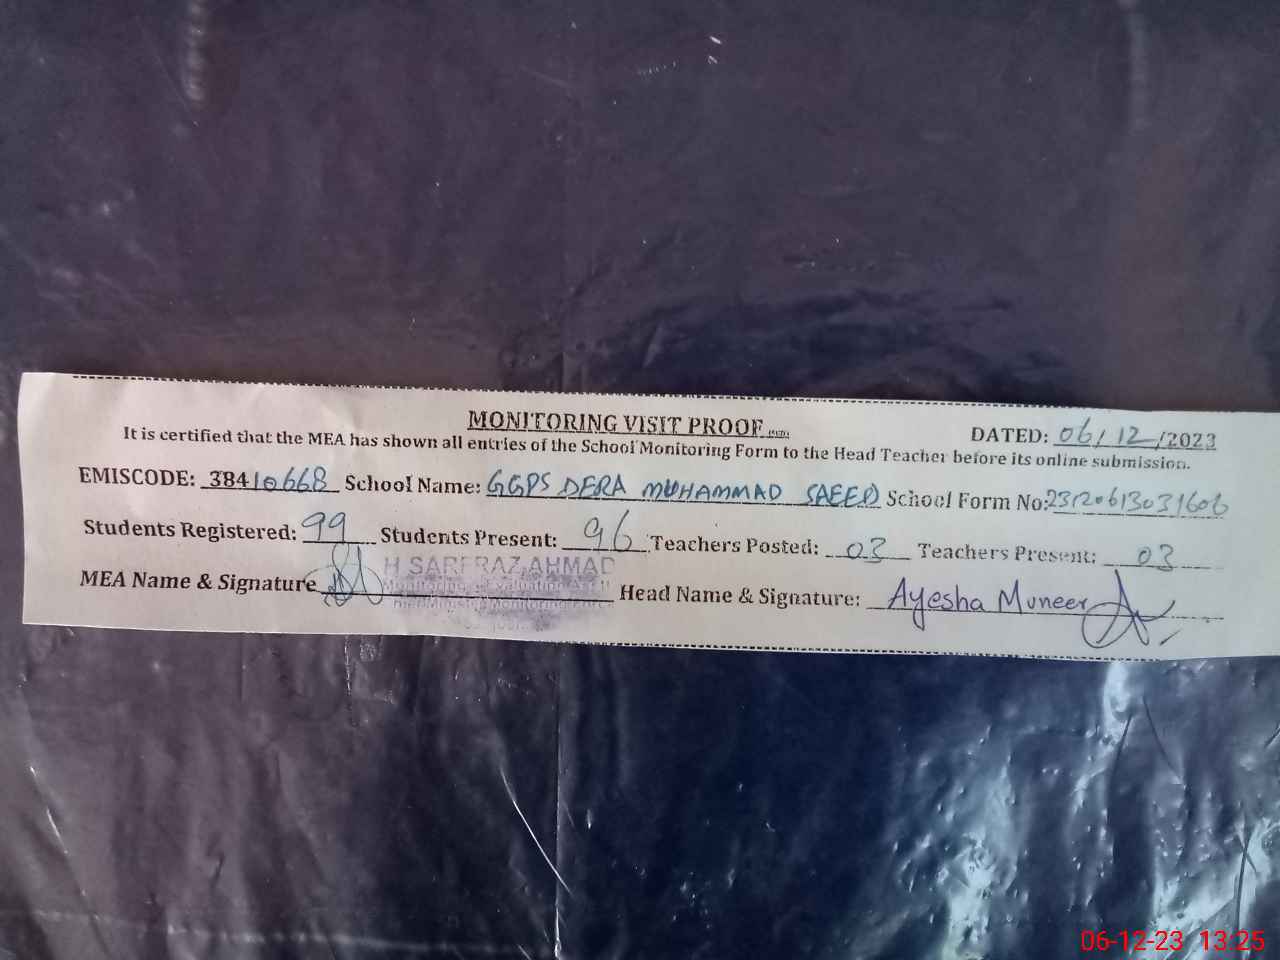 MONITORING VISIT PROOF
DATED: 06/12/2023
It is certified that the MEA has shown all entries of the School Monitoring Form to the Head Teacher before its online submission.
EMISCODE: 38410668 School Name: GGPS DERA MUHAMMAD SAEED School Form No: 23120613031606
Students Registered: 99 Students Present: 96 Teachers Posted: 03 Teachers Present: 03
MEA Name & Signature H SARFRAZ AHMAD Head Name & Signature: Ayesha Muneer
Monitoring & Evaluation Asstt
Monitoring Force
06-12-23 13:25